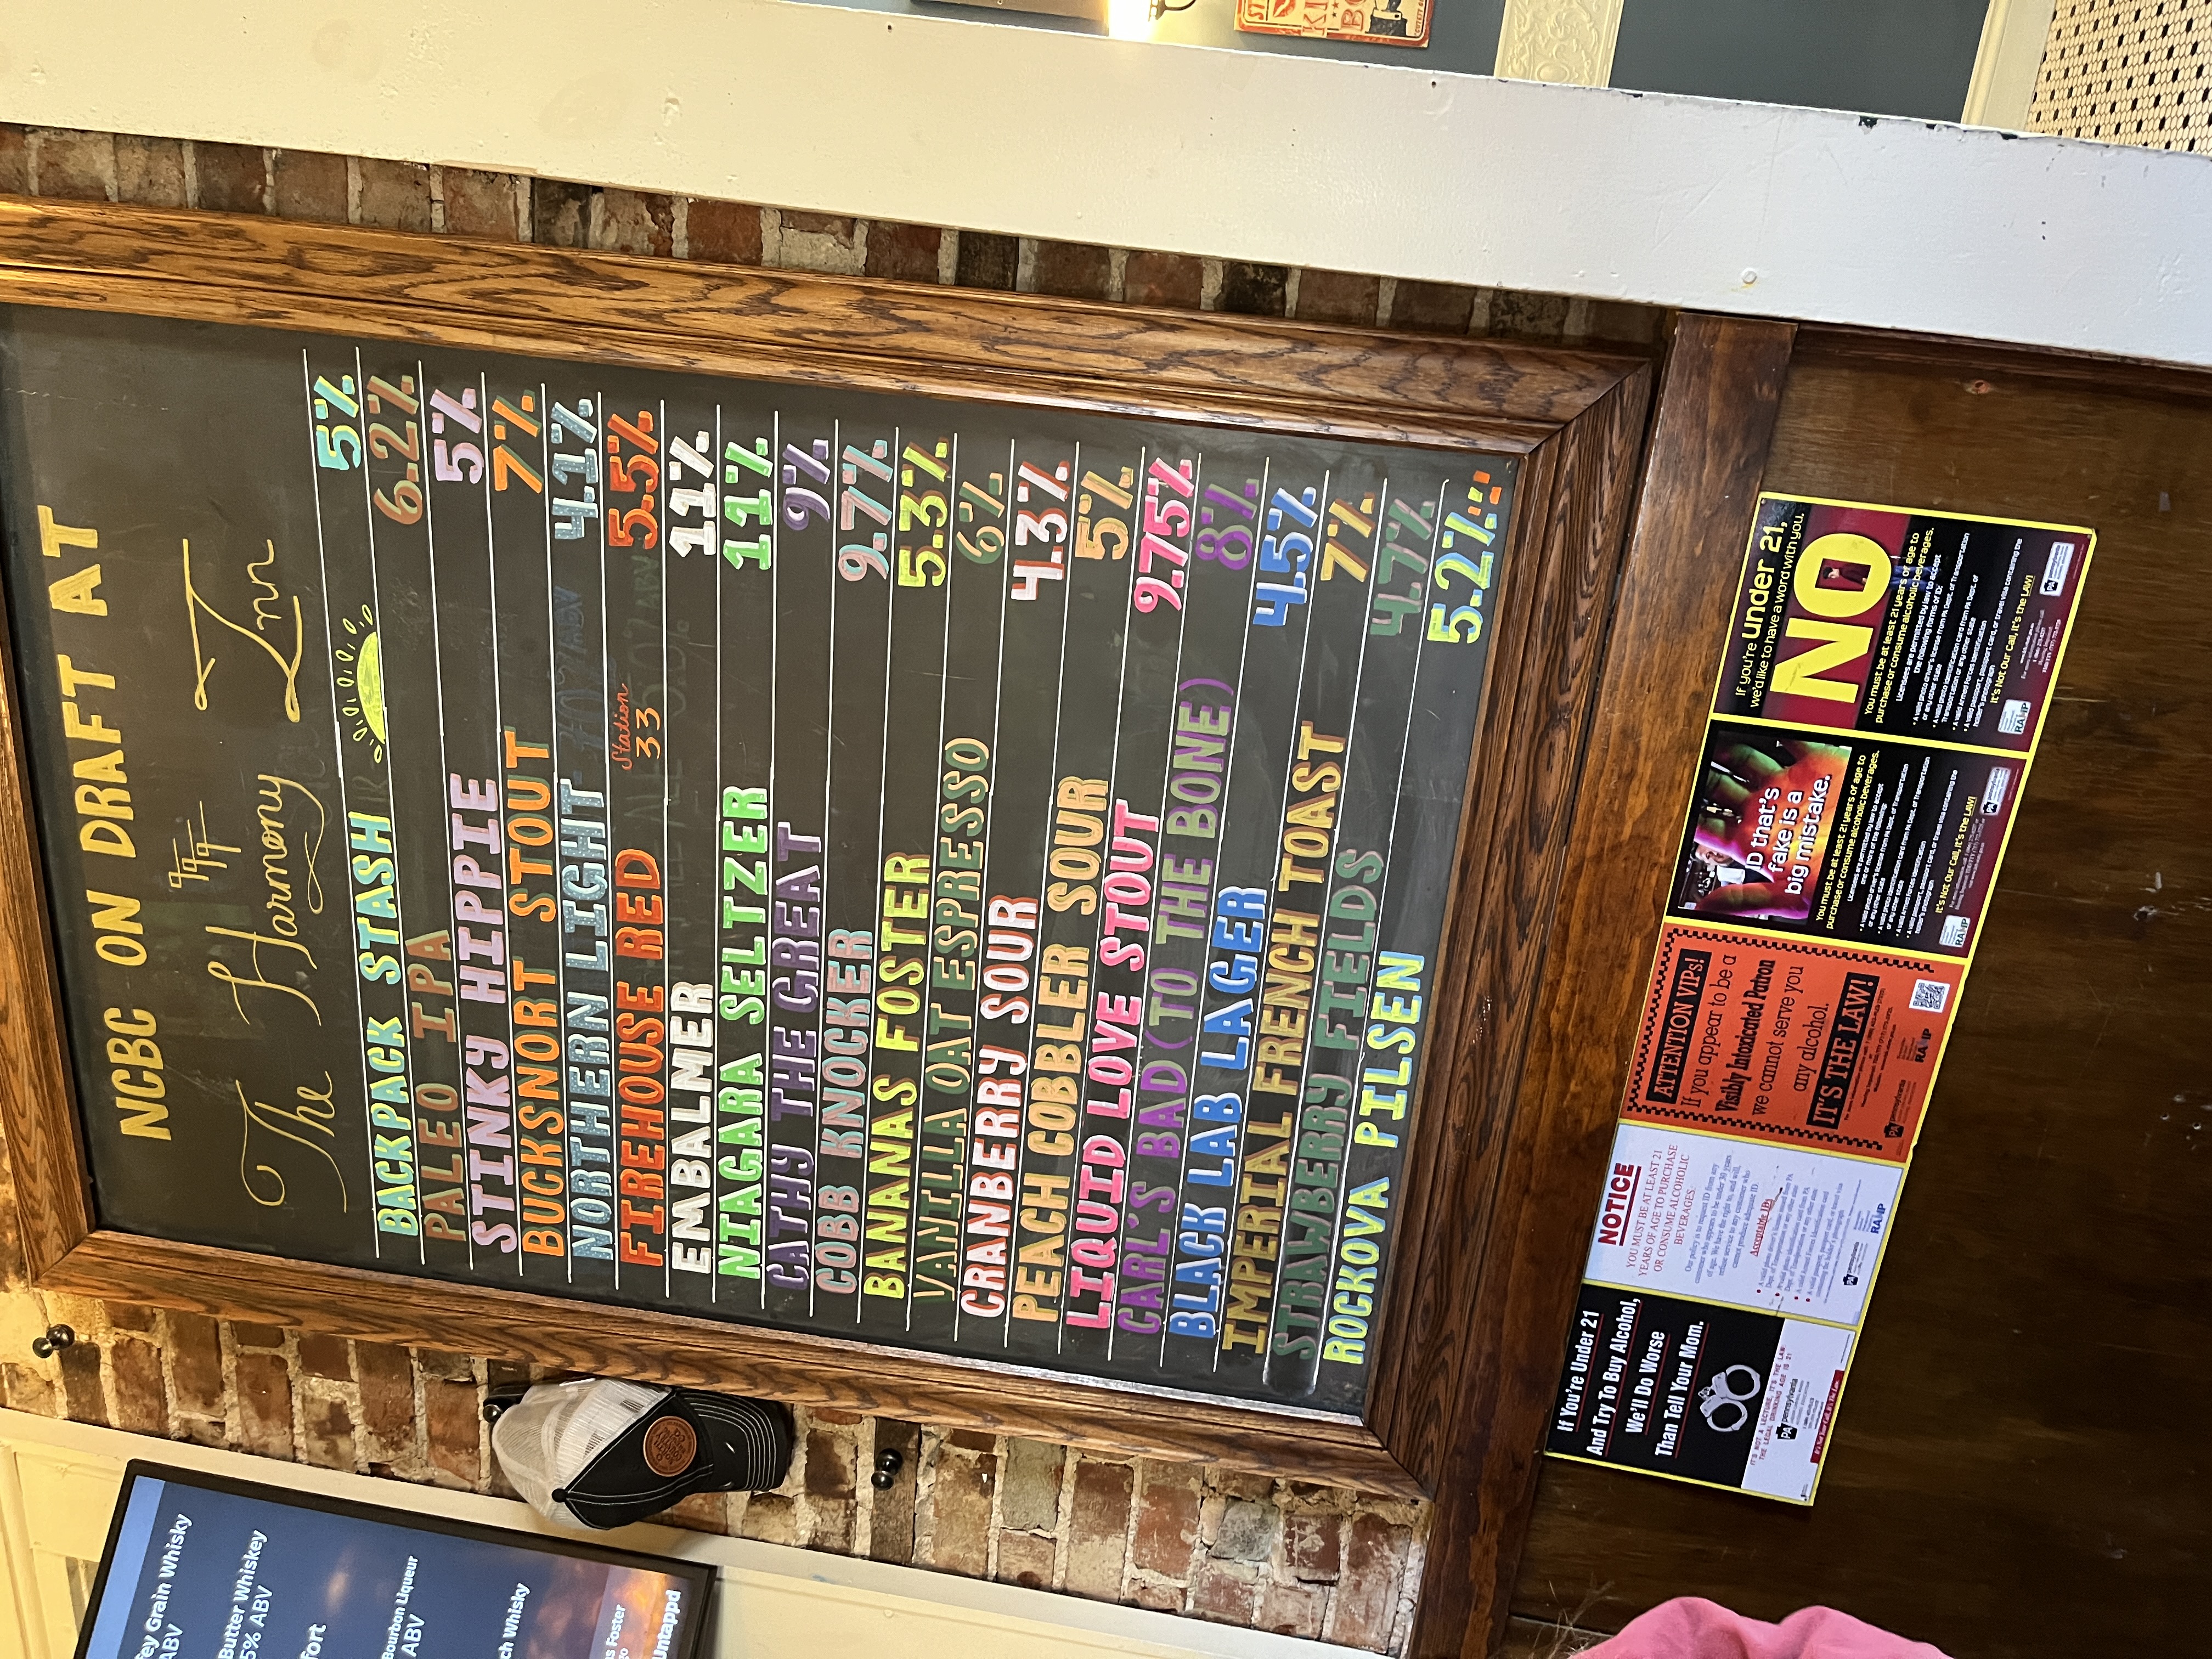 NCBC ON DRAFT AT
The Harmony Inn
BACKPACK STASH 5%
PALEO IPA 6.2%
STINKY HIPPIE 5%
BUCKSNORT STOUT 7%
NORTHERN LIGHT 4.1%
FIREHOUSE RED Station 33 5.5%
EMBALMER 11%
NIAGARA SELTZER 11%
CATHY THE GREAT 9%
COBB KNOCKER 9.7%
BANANAS FOSTER 5.3%
VANILLA OAT ESPRESSO 6%
CRANBERRY SOUR 4.3%
PEACH COBBLER SOUR 5%
LIQUID LOVE STOUT 9.75%
CARL'S BAD (TO THE BONE) 8%
BLACK LAB LAGER 4.5%
IMPERIAL FRENCH TOAST 7%
STRAWBERRY FIELDS 4.7%
ROCKOVA PILSEN 5.2%
fey Grain Whisky
ABV
Butter Whiskey
5% ABV
fort
Bourbon Liqueur
ABV
ch Whisky
s Foster
Untappd
If You're Under 21
And Try To Buy Alcohol,
We'll Do Worse
Than Tell Your Mom.
IT'S NOT A LECTURE, IT'S THE LAW!
THE LEGAL DRINKING AGE IS 21
PA pennsylvania
NOTICE
YOU MUST BE AT LEAST 21
YEARS OF AGE TO PURCHASE
OR CONSUME ALCOHOLIC
BEVERAGES.
Acceptable ID:
pennsylvania
RAMP
ATTENTION VIPs!
If you appear to be a
Visibly Intoxicated Patron
we cannot serve you
any alcohol.
IT'S THE LAW!
pennsylvania
RAMP
ID that's
fake is a
big mistake.
You must be at least 21 years of age to
purchase or consume alcoholic beverages.
It's Not Our Call, It's the LAW!
RAMP
If you're under 21,
we'd like to have a word with you.
NO
You must be at least 21 years of age to
purchase or consume alcoholic beverages.
Licensees are permitted by law to accept
the following forms of ID:
It's Not Our Call, It's the LAW!
RAMP